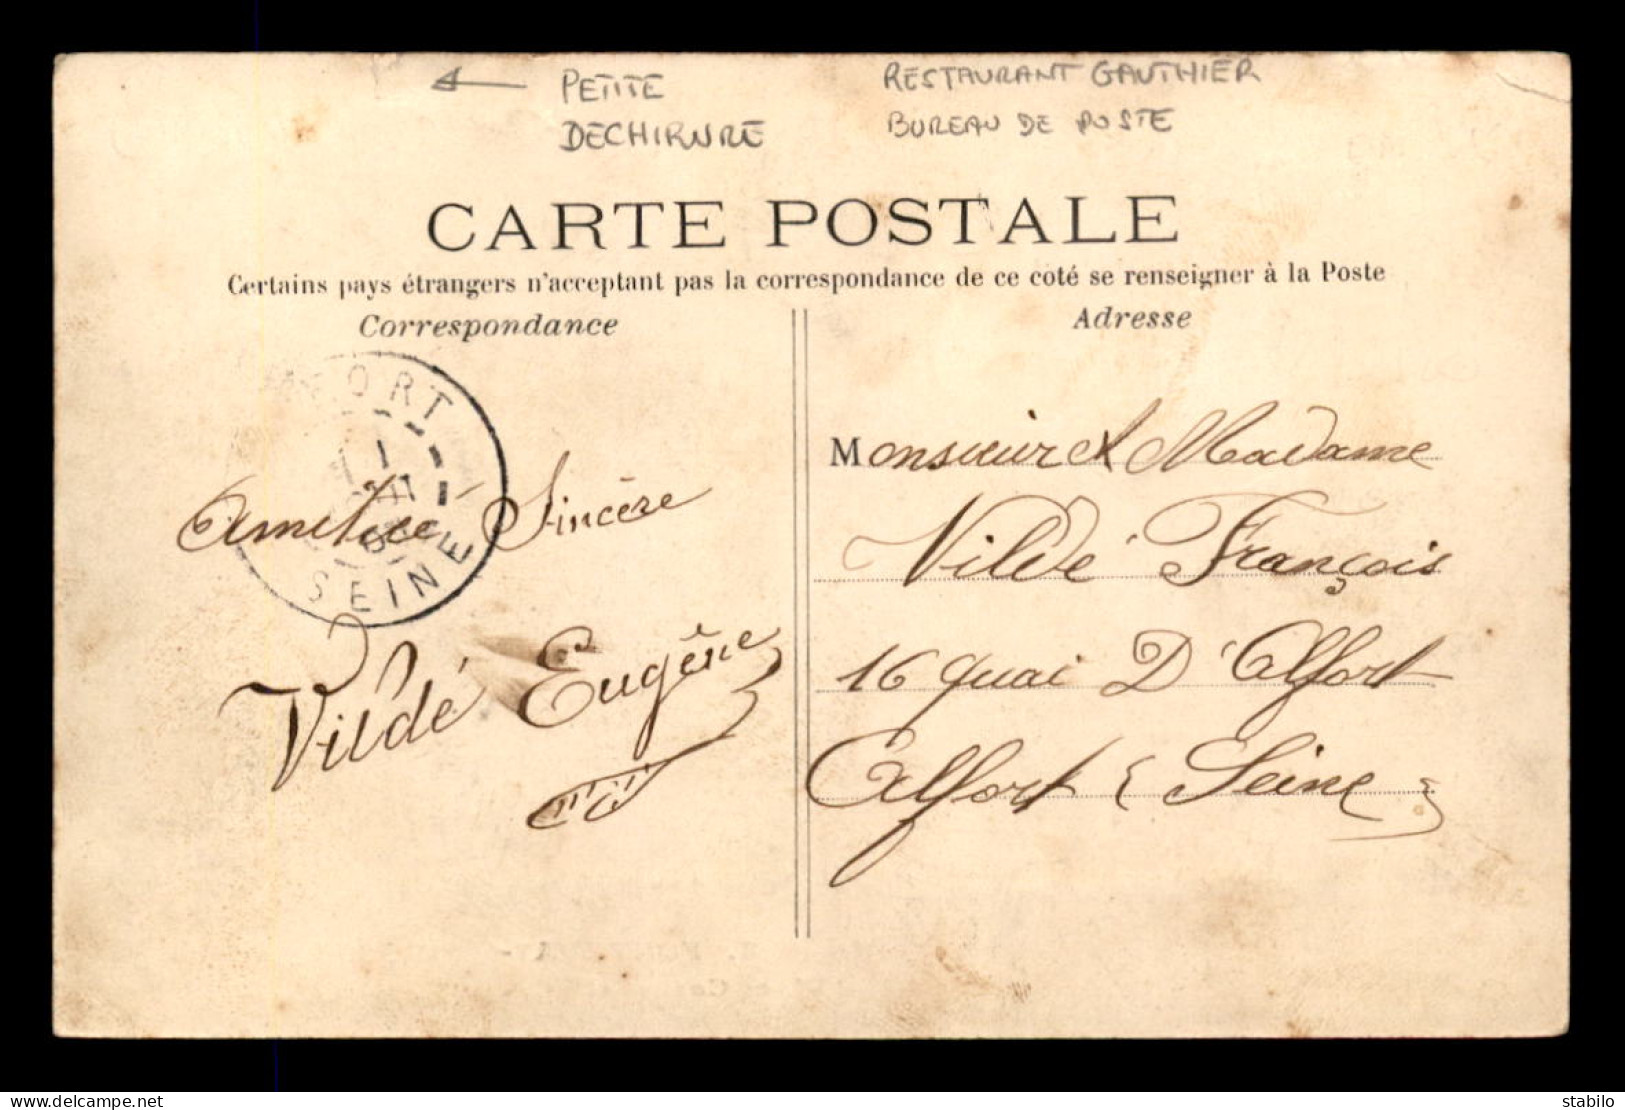 PETITE
DECHIRURE
RESTAURANT GAUTHIER
BUREAU DE POSTE
CARTE POSTALE
Certains pays étrangers n'acceptant pas la correspondance de ce coté se renseigner à la Poste
Correspondance
Adresse
FORT
SEINE
Amitié Sincère
Vildé Eugène
Monsieur & Madame
Vildé François
16 quai D'Alfort
Alfort (Seine)
delcampe.net
stabilo